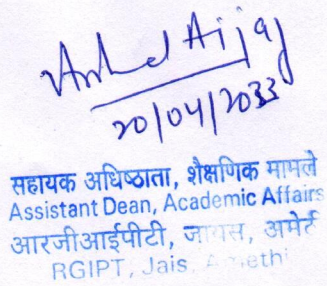 Arshad Aijaz
20/04/2033
सहायक अधिष्ठाता, शैक्षणिक मामले
Assistant Dean, Academic Affairs
आरजीआईपीटी, जायस, अमेठी
RGIPT, Jais, Amethi